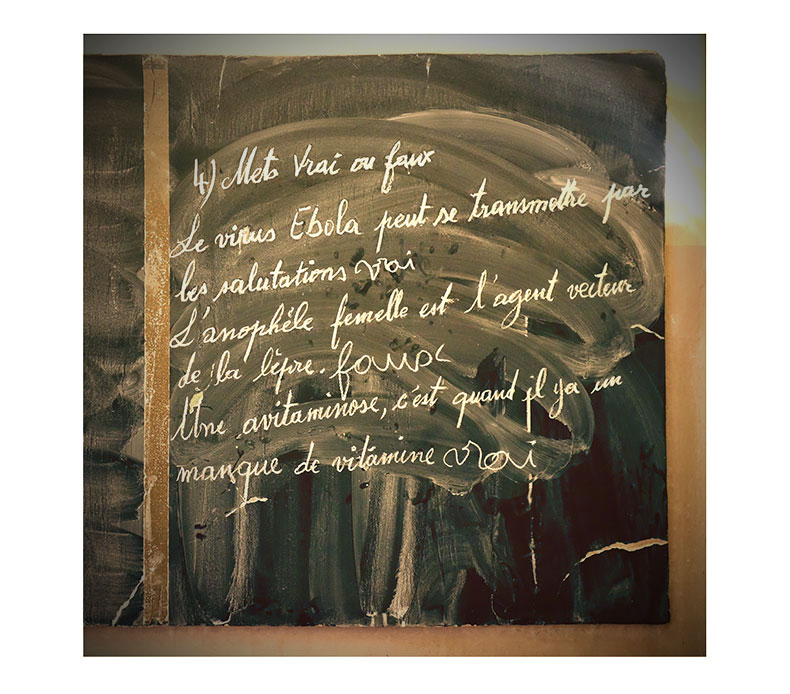 4) Mets Vrai ou faux
Le virus Ebola peut se transmettre par
les salutations vrai
L'anophèle femelle est l'agent vecteur
de la lèpre. faux
Une avitaminose, c'est quand il ya un
manque de vitamine vrai